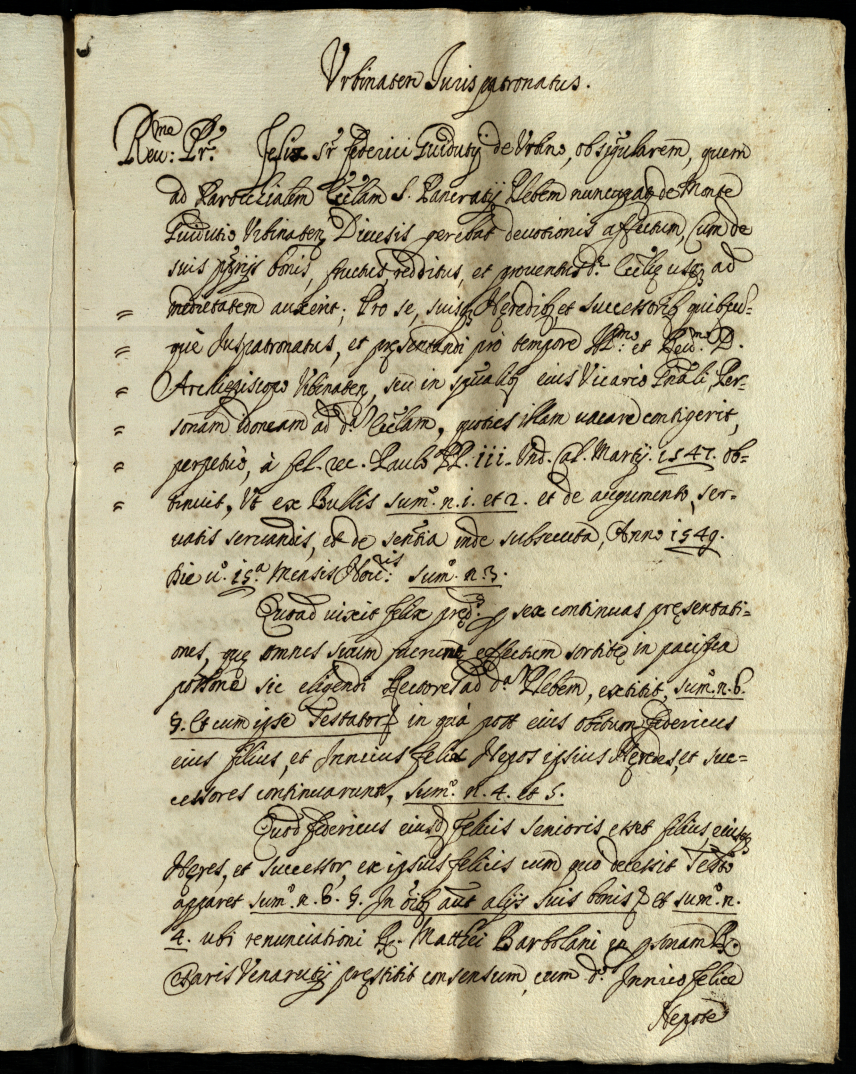 Urbinaten Juris patronatus.
Reu: Pr. Felix sr Federici Guidutij de Urbino, ob sigularem, quem
ad Parochialem Ecclam S. Pancratij Plebem nuncupat de Monte
Guidutio Urbinaten Diecesis gerebat devotionis affectum, Cum de
suis prijs bonis, fructus, redditus, et proventus d. Ecclię usq ad
medietatem auxerit; Pro se, suisq Heredib et successorib quibus=
que Juspatronatus, et presentandi pro tempore Illmo et Reumo D.
Archiepiscopo Urbinaten, seu in spualib eius Vicario Gnali, Per=
sonam idoneam ad d.ᵃ Ecclam, quoties illam vacare contigerit,
perpetuò, à fel. rec. Paulo PP. iii. Ind. Cal. Martij. 1547. ob=
tinuit, Ut ex Bullis sum.º n. 1. et 2. et de augumento, ser=
vatis servandis, et de sentia inde subsecuta, Anno 1549.
Die u.º 15.ª Mensis Nou.is sum.º n. 3.
Quoad vixit Felix pred. p sex continuas pręsentati=
ones, quę omnes suum fuerunt effectum sortitę in pacifica
possone sic eligendi Rectores ad d.ᵃ Plebem, extitit, sum.º n. 6.
§. Et cum ipse Testator in quà post eius obitum Federicus
eius filius, et Innicus Felix Nepos ipsius Heredes, et suc=
cessores continuarunt, sum.º n. 4. et 5.
Quod Federicus eiusd Felicis senioris esset filius eiusq
Heres, et successor, ex ipsius Felicis cum quo decessit Testo
apparet sum.º n. 6. §. In oib aut alijs suis bonis et sum.º n.
4. ubi renunciationi R. Matthei Barbolani in psonam R.
Cęsaris Venarutij pręstitit consensum, cum d.º Innico Felice
Nepote